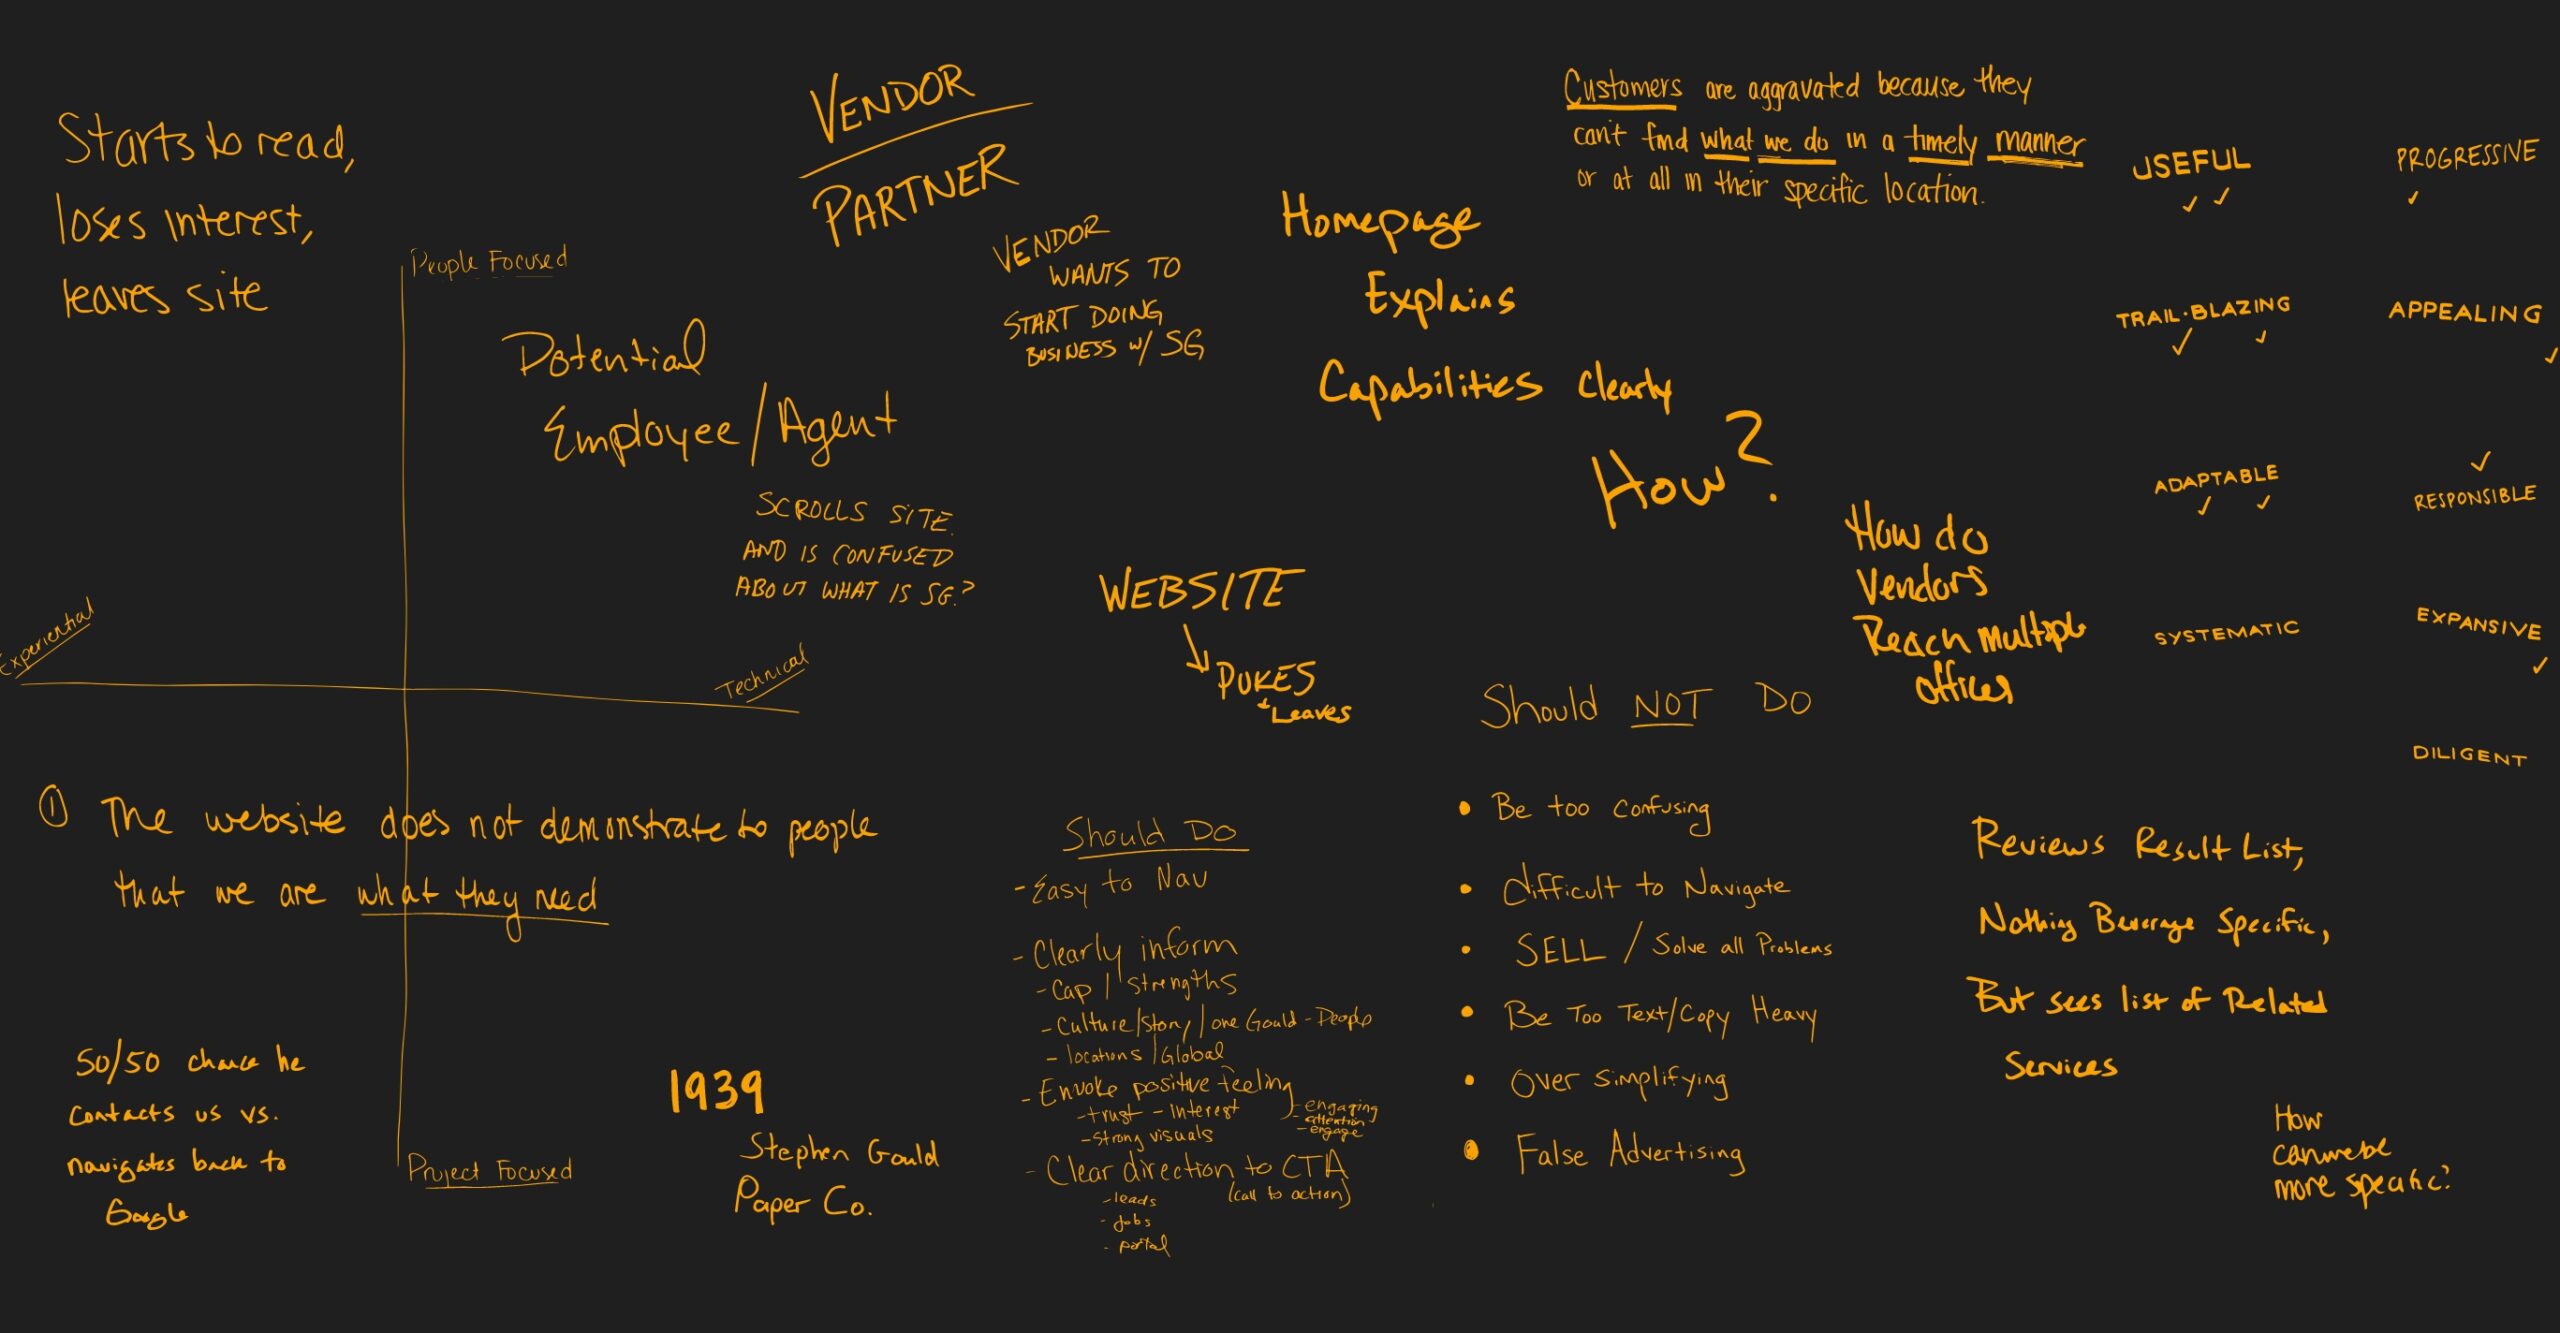 Starts to read,
loses interest,
leaves site
VENDOR
PARTNER
People Focused
Potential
Employee/Agent
SCROLLS SITE.
AND IS CONFUSED
ABOUT WHAT IS SG?
Experiential
Technical
VENDOR
WANTS TO
START DOING
BUSINESS W/ SG
Homepage
Explains
Capabilities Clearly
How?
Customers are aggravated because they
can't find what we do in a timely manner
or at all in their specific location.
USEFUL
PROGRESSIVE
TRAIL·BLAZING
APPEALING
ADAPTABLE
RESPONSIBLE
SYSTEMATIC
EXPANSIVE
DILIGENT
How do
Vendors
Reach multiple
offices
WEBSITE
PUKES
+ Leaves
① The website does not demonstrate to people
that we are what they need
50/50 chance he
contacts us vs.
navigates back to
Google
Project Focused
1939
Stephen Gould
Paper Co.
Should Do
- Easy to Nav
- Clearly inform
- Cap / Strengths
- Culture/Story/one Gould - People
- locations/Global
- Envoke positive feeling
- trust - Interest
- strong visuals
- engaging
- attention
- engage
- Clear direction to CTA
(call to action)
- leads
- Jobs
- portal
Should NOT DO
• Be too confusing
• Difficult to Navigate
• SELL / Solve all Problems
• Be Too Text/Copy Heavy
• Over simplifying
• False Advertising
Reviews Result List,
Nothing Beverage Specific,
But sees list of Related
Services
How
can we be
more specific?